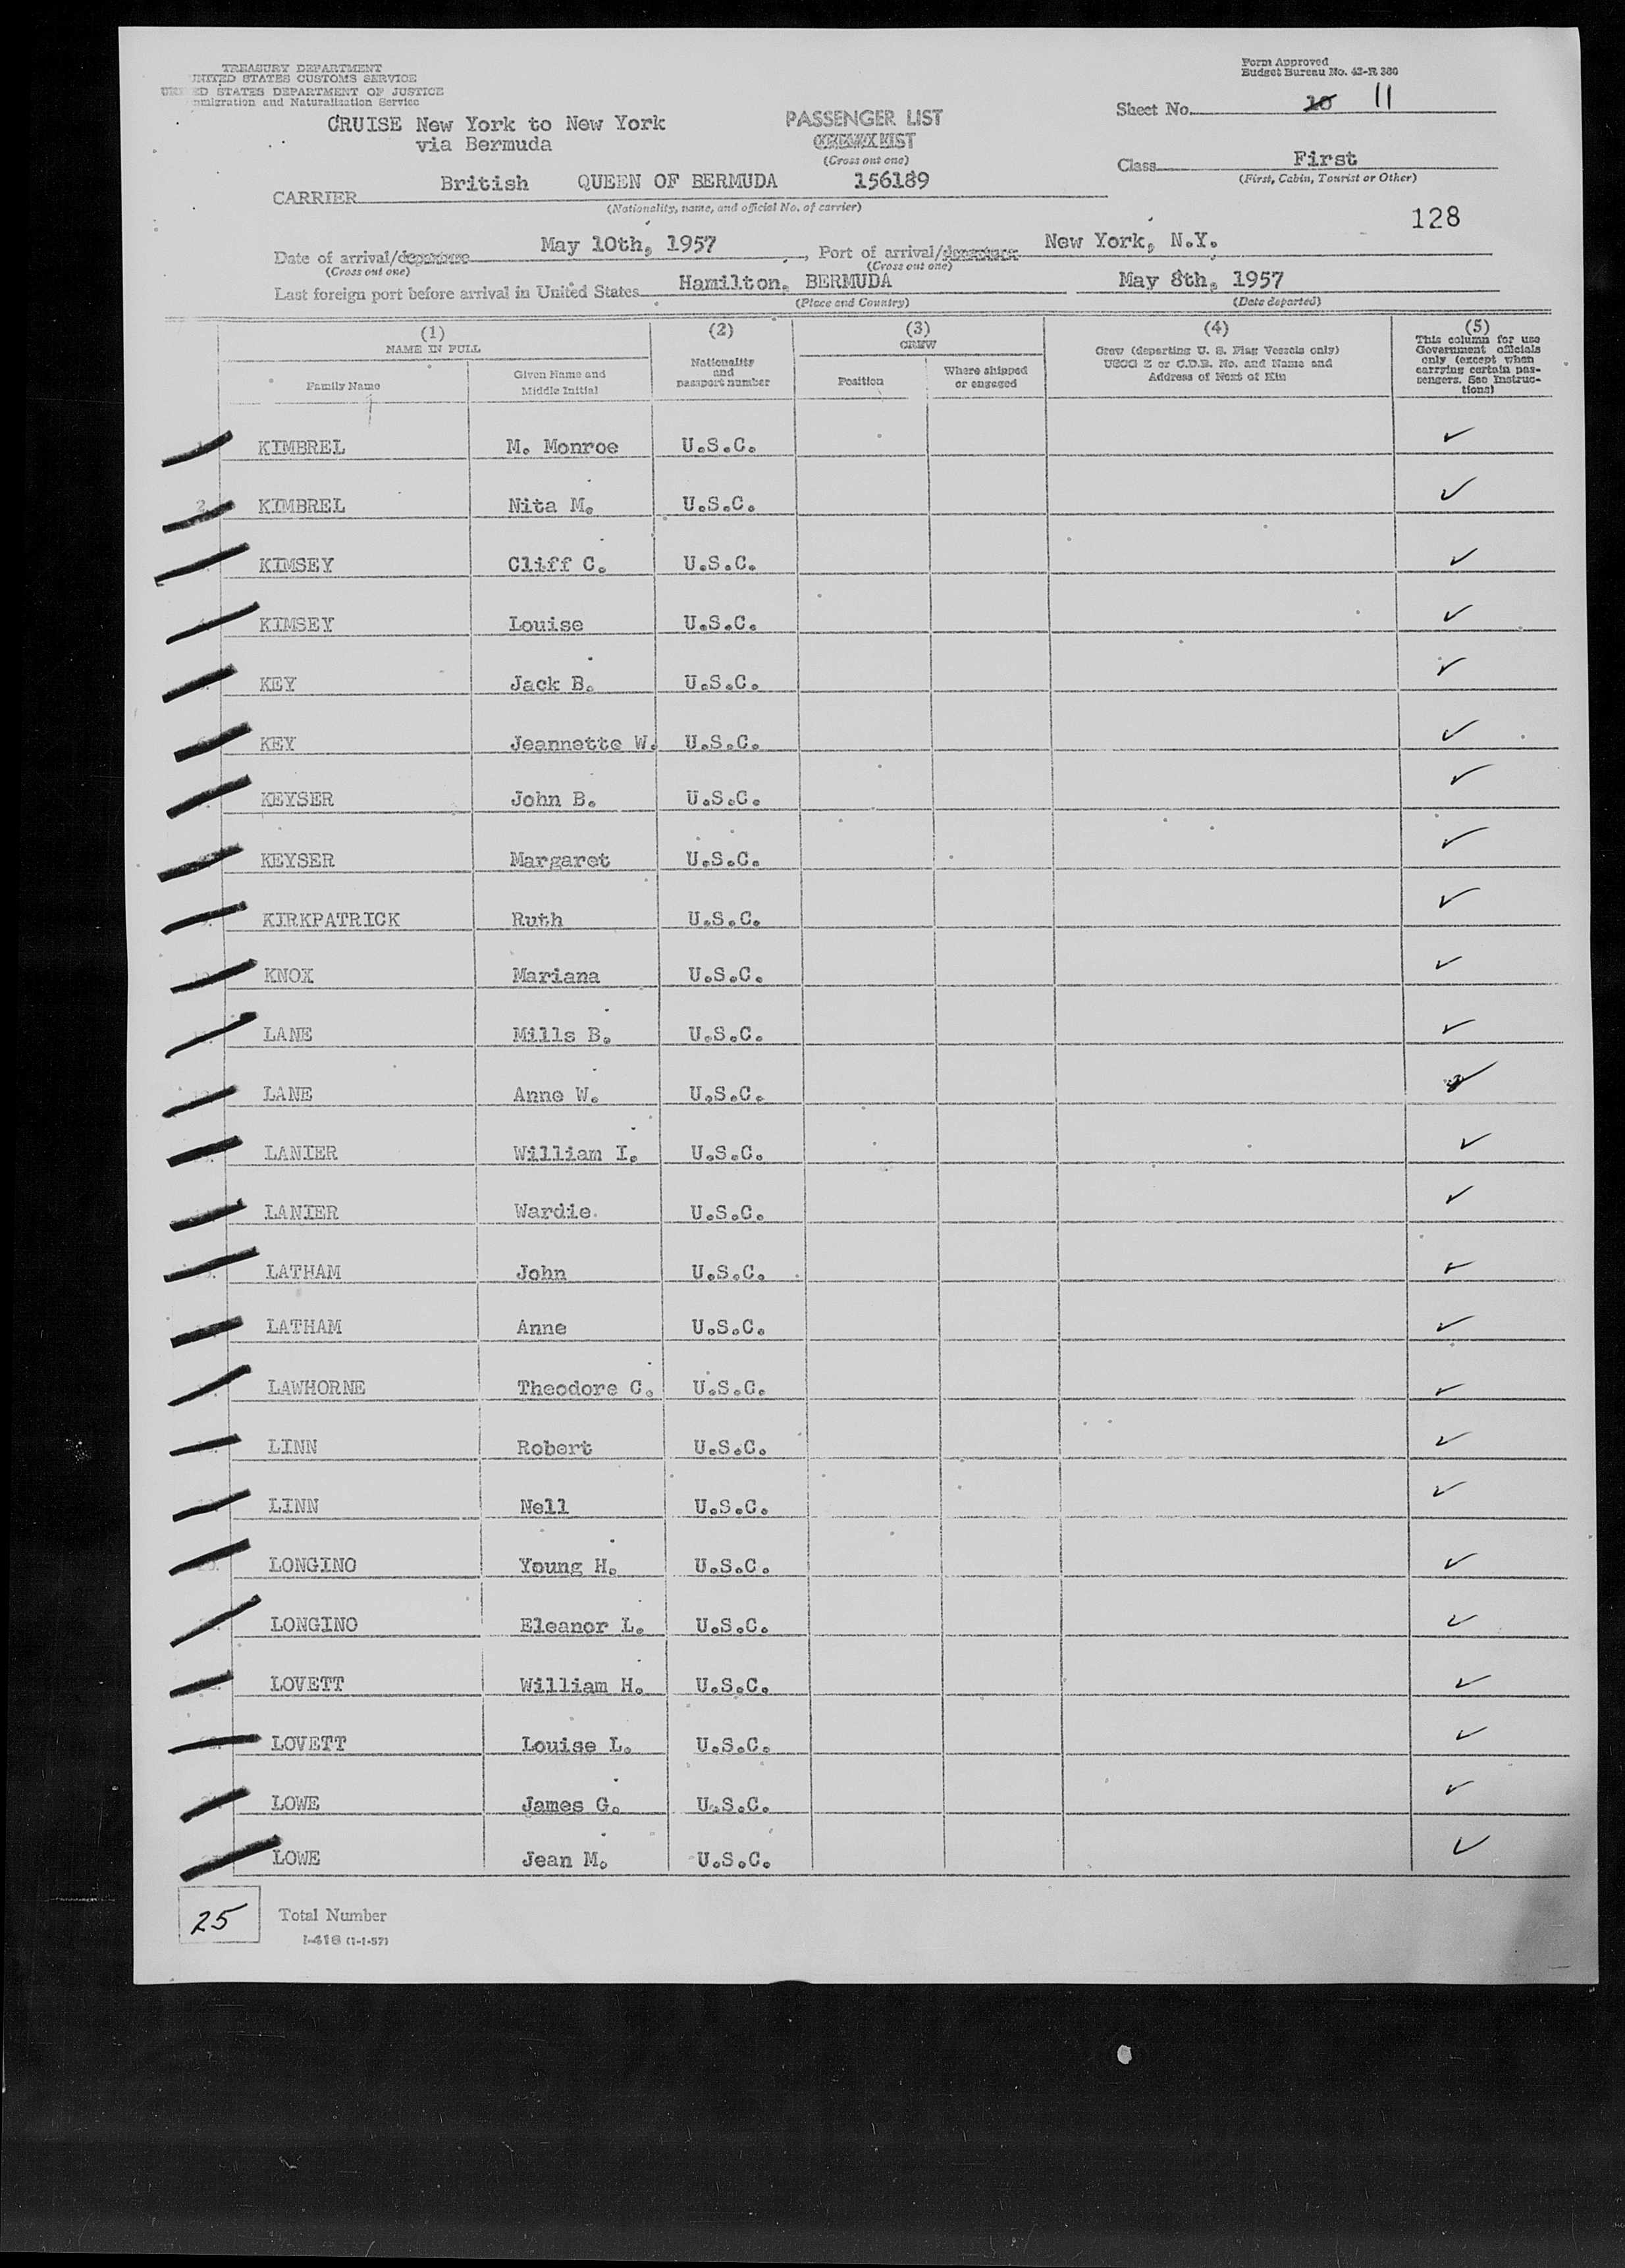 TREASURY DEPARTMENT
UNITED STATES CUSTOMS SERVICE
UNITED STATES DEPARTMENT OF JUSTICE
Immigration and Naturalization Service
Form Approved
Budget Bureau No. 43-R 380
Sheet No. 10 11
CRUISE New York to New York
via Bermuda
PASSENGER LIST
CREW LIST
(Cross out one)
Class First
(First, Cabin, Tourist or Other)
CARRIER British QUEEN OF BERMUDA 156189
(Nationality, name, and official No. of carrier)
128
Date of arrival/departure May 10th, 1957, Port of arrival/departure New York, N.Y.
(Cross out one) (Cross out one)
Last foreign port before arrival in United States Hamilton, BERMUDA May 8th, 1957
(Place and Country) (Date departed)
(1) (2) (3) (4) (5)
NAME IN FULL
Family Name
Given Name and Middle Initial
Nationality and passport number
CREW
Position
Where shipped or engaged
Crew (departing U. S. Flag Vessels only)
USCG Z or C.D.B. No. and Name and
Address of Next of Kin
This column for use
Government officials
only (except when
carrying certain pas-
sengers. See Instruc-
tions)
KIMBREL M. Monroe U.S.C. ✓
2. KIMBREL Nita M. U.S.C. ✓
KIMSEY Cliff C. U.S.C. ✓
KIMSEY Louise U.S.C. ✓
KEY Jack B. U.S.C. ✓
KEY Jeannette W. U.S.C. ✓
KEYSER John B. U.S.C. ✓
KEYSER Margaret U.S.C. ✓
KIRKPATRICK Ruth U.S.C. ✓
KNOX Mariana U.S.C. ✓
LANE Mills B. U.S.C. ✓
LANE Anne W. U.S.C. ✓
LANIER William I. U.S.C. ✓
LANIER Wardie U.S.C. ✓
LATHAM John U.S.C. ✓
LATHAM Anne U.S.C. ✓
LAWHORNE Theodore C. U.S.C. ✓
LINN Robert U.S.C. ✓
LINN Nell U.S.C. ✓
LONGINO Young H. U.S.C. ✓
LONGINO Eleanor L. U.S.C. ✓
LOVETT William H. U.S.C. ✓
LOVETT Louise L. U.S.C. ✓
LOWE James G. U.S.C. ✓
LOWE Jean M. U.S.C. ✓
25 Total Number
I-418 (1-1-57)